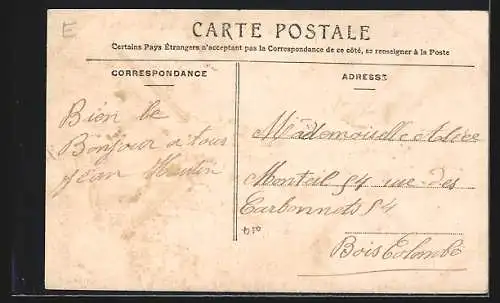 E
CARTE POSTALE
Certains Pays Étrangers n'acceptant pas la Correspondance de ce côté, se renseigner à la Poste
CORRESPONDANCE
Bien le
Bonjour a tous
Jean
ADRESSE
Mademoiselle Alice
Monteil 54 rue des
Carbonnets 54
Bois Colombe